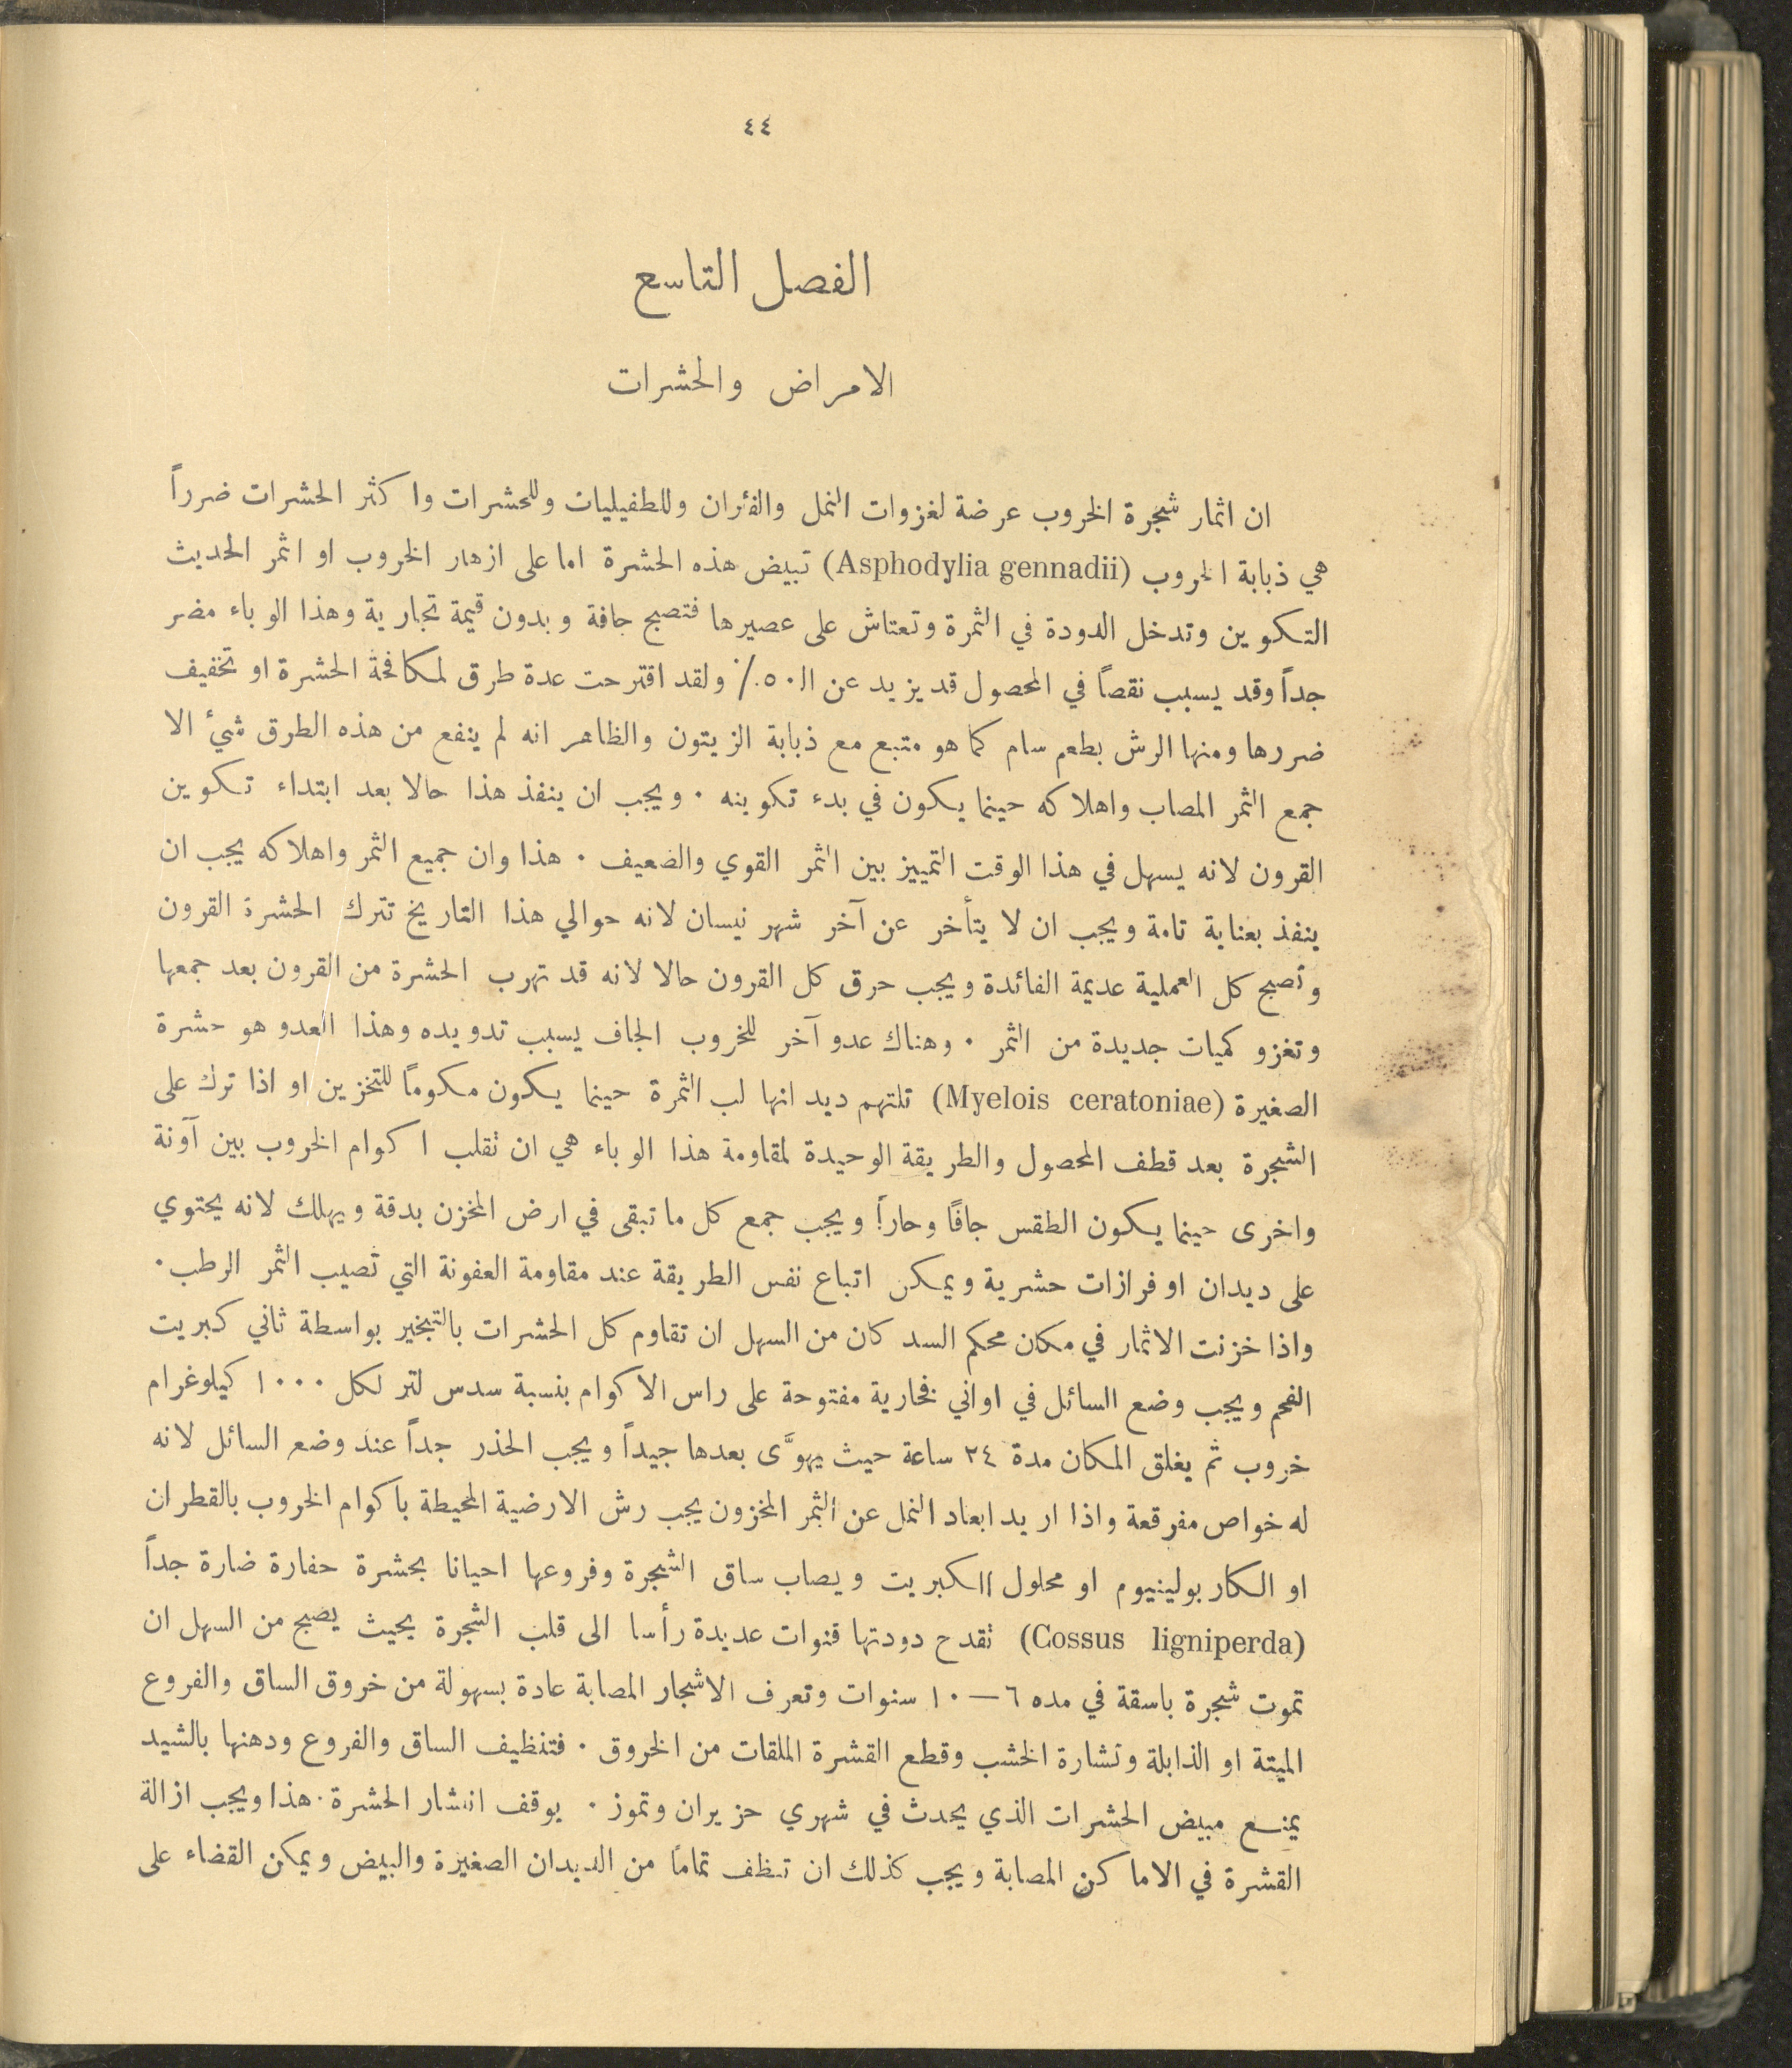 ٤٤
الفصل التاسع
الامراض والحشرات
ان اثمار شجرة الخروب عرضة لغزوات النمل والفئران وللطفيليات وللحشرات واكثر الحشرات ضرراً
هي ذبابة الخروب (Asphodylia gennadii) تبيض هذه الحشرة اما على ازهار الخروب او الثمر الحديث
التكوين وتدخل الدودة في الثمرة وتعتاش على عصيرها فتصبح جافة وبدون قيمة تجارية وهذا الوباء مضر
جداً وقد يسبب نقصاً في المحصول قد يزيد عن الـ ٥٠٪ ولقد اقترحت عدة طرق لمكافحة الحشرة او تخفيف
ضررها ومنها الرش بطعم سام كما هو متبع مع ذبابة الزيتون والظاهر انه لم ينفع من هذه الطرق شئ الا
جمع الثمر المصاب واهلاكه حينما يكون في بدء تكوينه ٠ ويجب ان ينفذ هذا حالا بعد ابتداء تكوين
القرون لانه يسهل في هذا الوقت التمييز بين الثمر القوي والضعيف ٠ هذا وان جميع الثمر واهلاكه يجب ان
ينفذ بعناية تامة ويجب ان لا يتأخر عن آخر شهر نيسان لانه حوالي هذا التاريخ تترك الحشرة القرون
وتصبح كل العملية عديمة الفائدة ويجب حرق كل القرون حالا لانه قد تهرب الحشرة من القرون بعد جمعها
وتغزو كميات جديدة من الثمر ٠ وهناك عدو آخر للخروب الجاف يسبب تدويده وهذا العدو هو حشرة
الصغيرة (Myelois ceratoniae) تلتهم ديدانها لب الثمرة حينما يكون مكوماً للتخزين او اذا ترك على
الشجرة بعد قطف المحصول والطريقة الوحيدة لمقاومة هذا الوباء هي ان تقلب اكوام الخروب بين آونة
واخرى حينما يكون الطقس جافًا وحاراً ويجب جمع كل ما تبقى في ارض المخزن بدقة ويهلك لانه يحتوي
على ديدان او فرازات حشرية ويمكن اتباع نفس الطريقة عند مقاومة العفونة التي تصيب الثمر الرطب٠
واذا خزنت الاثمار في مكان محكم السد كان من السهل ان تقاوم كل الحشرات بالتبخير بواسطة ثاني كبريت
الفحم ويجب وضع السائل في اواني فخارية مفتوحة على راس الاكوام بنسبة سدس لتر لكل ١٠٠٠ كيلوغرام
خروب ثم يغلق المكان مدة ٢٤ ساعة حيث يهوَّى بعدها جيداً ويجب الحذر جداً عند وضع السائل لانه
له خواص مفرقعة واذا اريد ابعاد النمل عن الثمر المخزون يجب رش الارضية المحيطة باكوام الخروب بالقطران
او الكاربولينيوم او محلول الكبريت ويصاب ساق الشجرة وفروعها احيانا بحشرة حفارة ضارة جداً
(Cossus ligniperda) تقدح دودتها قنوات عديدة رأسا الى قلب الشجرة بحيث يصبح من السهل ان
تموت شجرة باسقة في مده ٦—١٠ سنوات وتعرف الاشجار المصابة عادة بسهولة من خروق الساق والفروع
الميتة او الذابلة ونشارة الخشب وقطع القشرة الملقات من الخروق ٠ فتنظيف الساق والفروع ودهنها بالشيد
يمنع مبيض الحشرات الذي يحدث في شهري حزيران وتموز ٠ يوقف انتشار الحشرة٠ هذا ويجب ازالة
القشرة في الاماكن المصابة ويجب كذلك ان تنظف تمامًا من الديدان الصغيرة والبيض ويمكن القضاء على